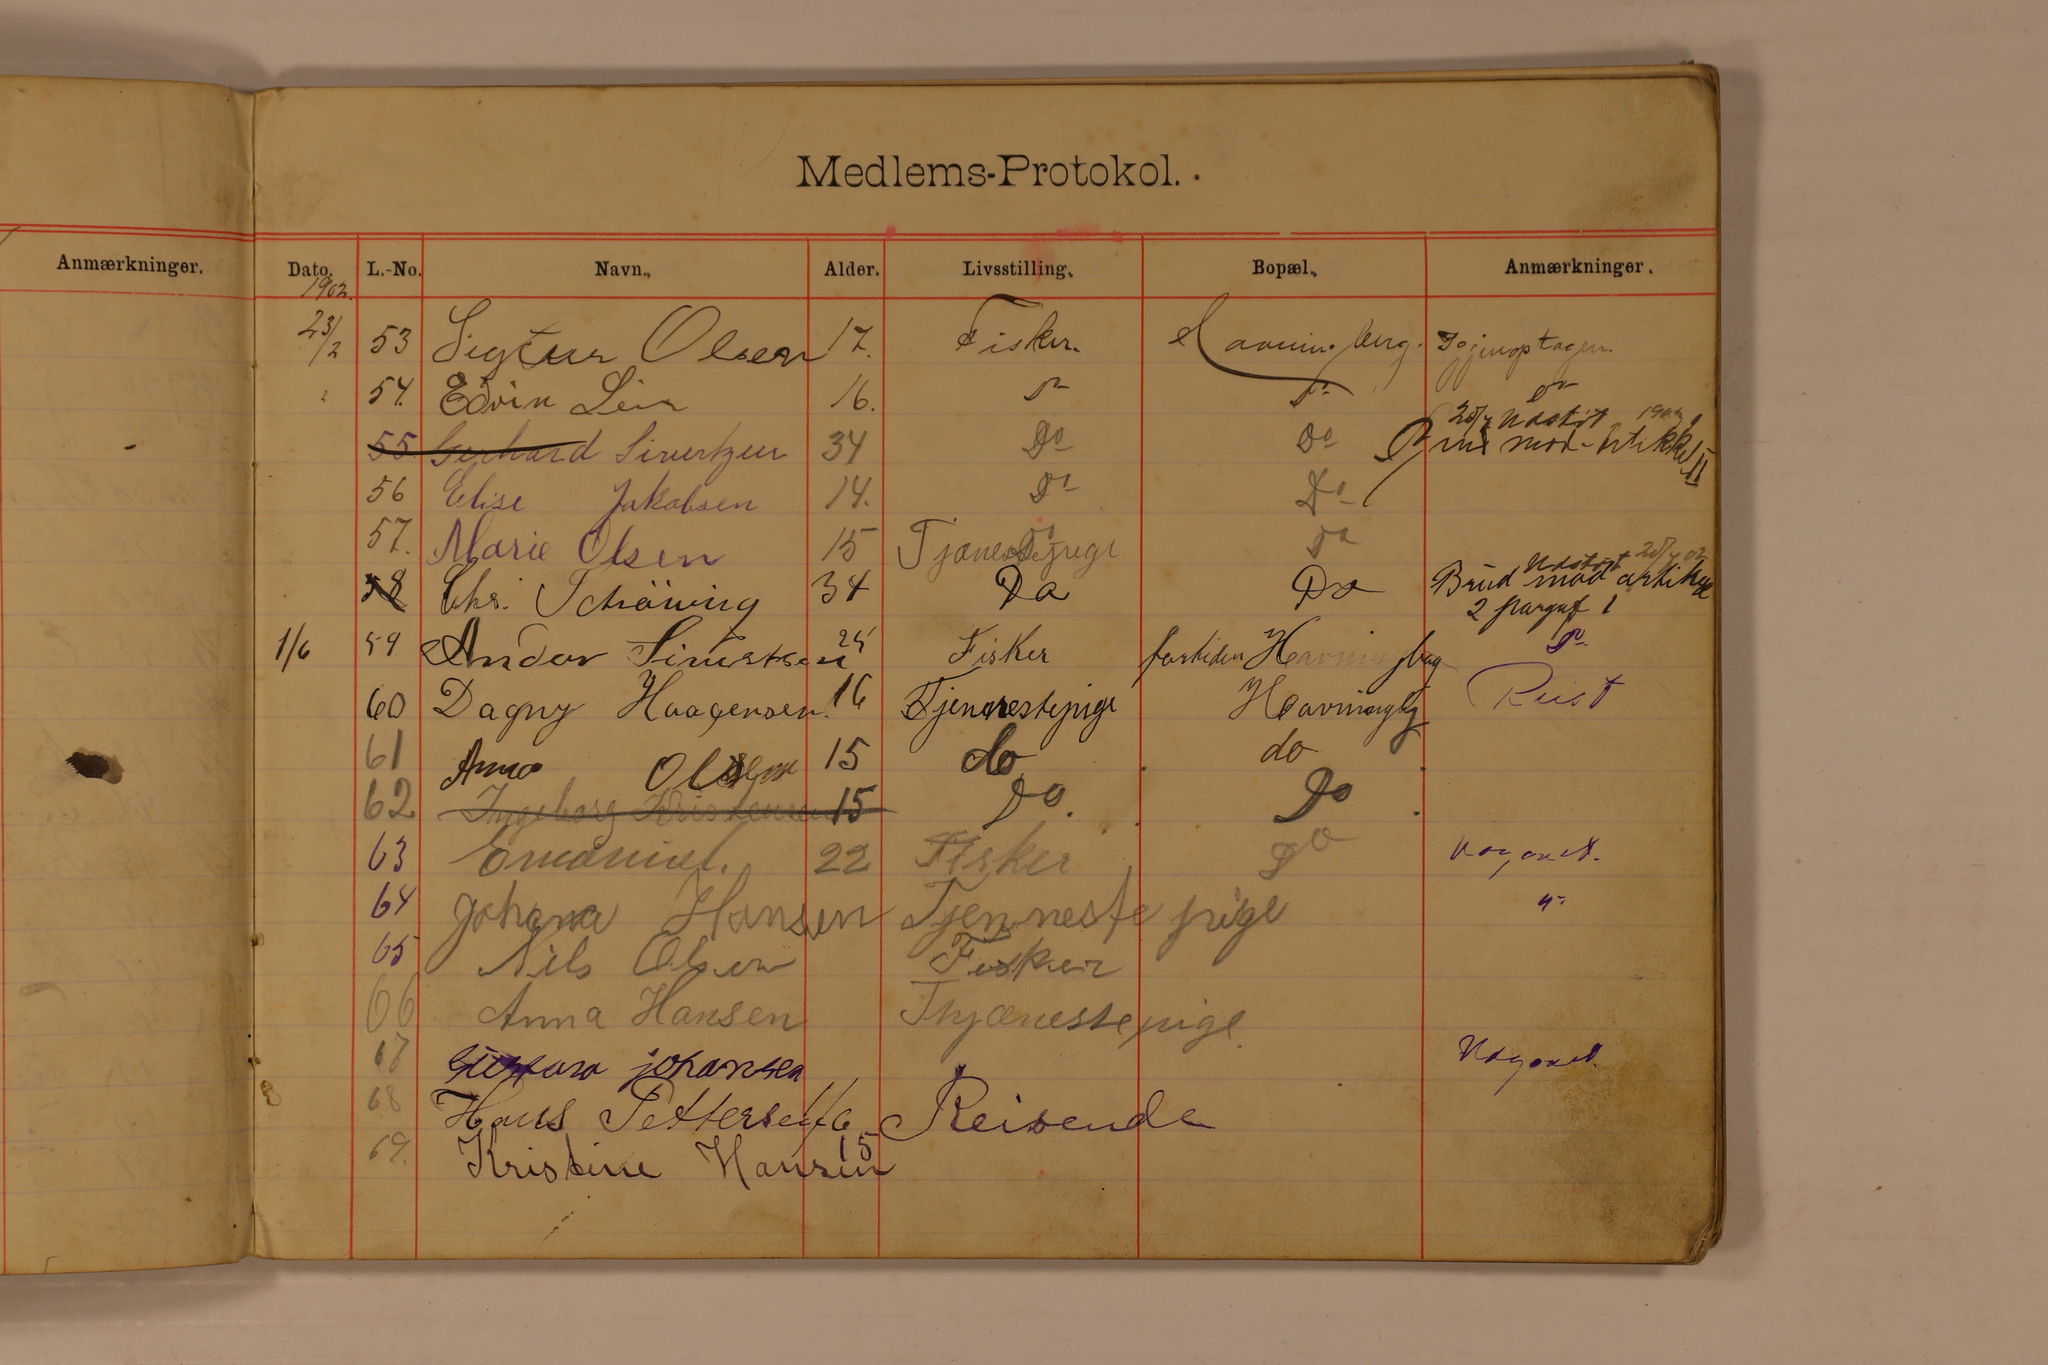 Medlems-Protokol.
Anmærkninger.
Dato. L.-No. Navn. Alder. Livsstilling. Bopæl. Anmærkninger.
1902.
23/2 53 Olsen 17. Fisker. Havningberg. Gjenoptagen.
" 54. Edvin 16. Do Do Do
20/7 Udstöt 1902
55 Gerhard Sivertzen 34 Do Do Brud mod Artikkel II
56 Elise Jakobsen 14. Do Do
57. Marie Olsen 15 Tjænestepige Do
Udstöt 20/7 02
58 Chr. Schöning 34 Do Do Brud mod artikel
2 1
1/6 59 Andor 24 Fisker fortiden Havningberg Do
60 Dagny Haagensen. 16 Tjenarestepige Havningbg Reist
61 Anna Olsen 15 do do
62 Ingeborg Kristensen 15 Do. Do
63 Emanuel. 22 Fisker Do Udgaaet.
64 Johana Hansen Tjenneste pige "
65 Nils Olsen Fisker
66 Anna Hansen Thjænestepige
67 johansen Udgaaet.
68 Hans Pettersen 16 Reisende
69. Kristine Hansen 15